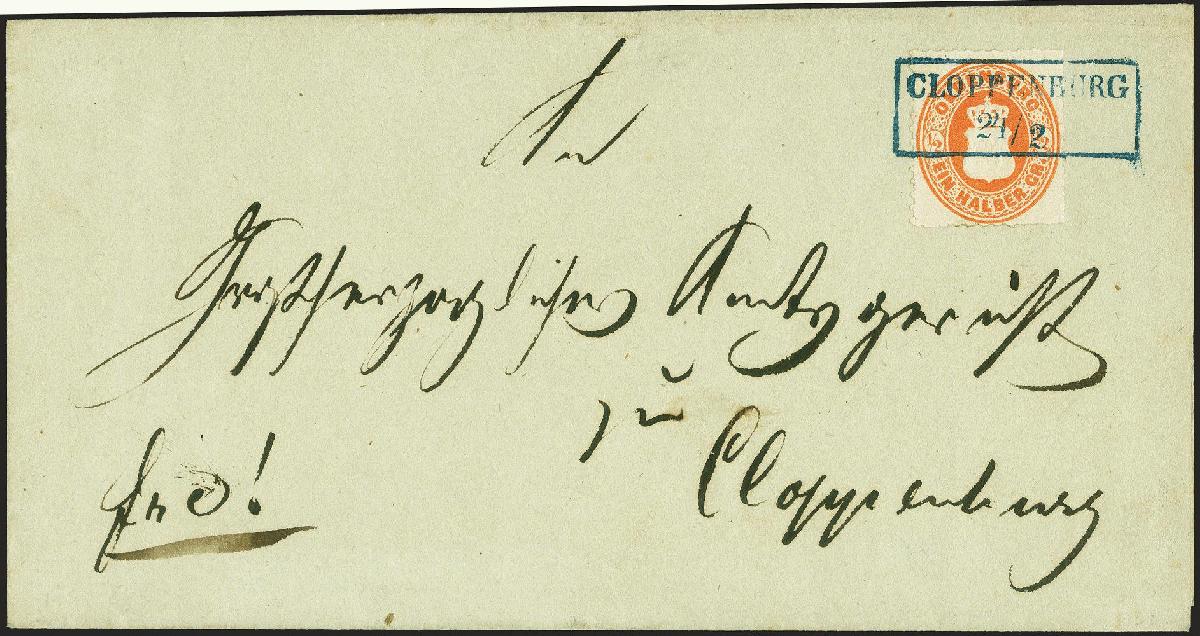 CLOPPENBURG
24/2
OLDENBURG
EIN HALBER GR.
An
Großherzogliches Amtsgericht
zu
Cloppenburg